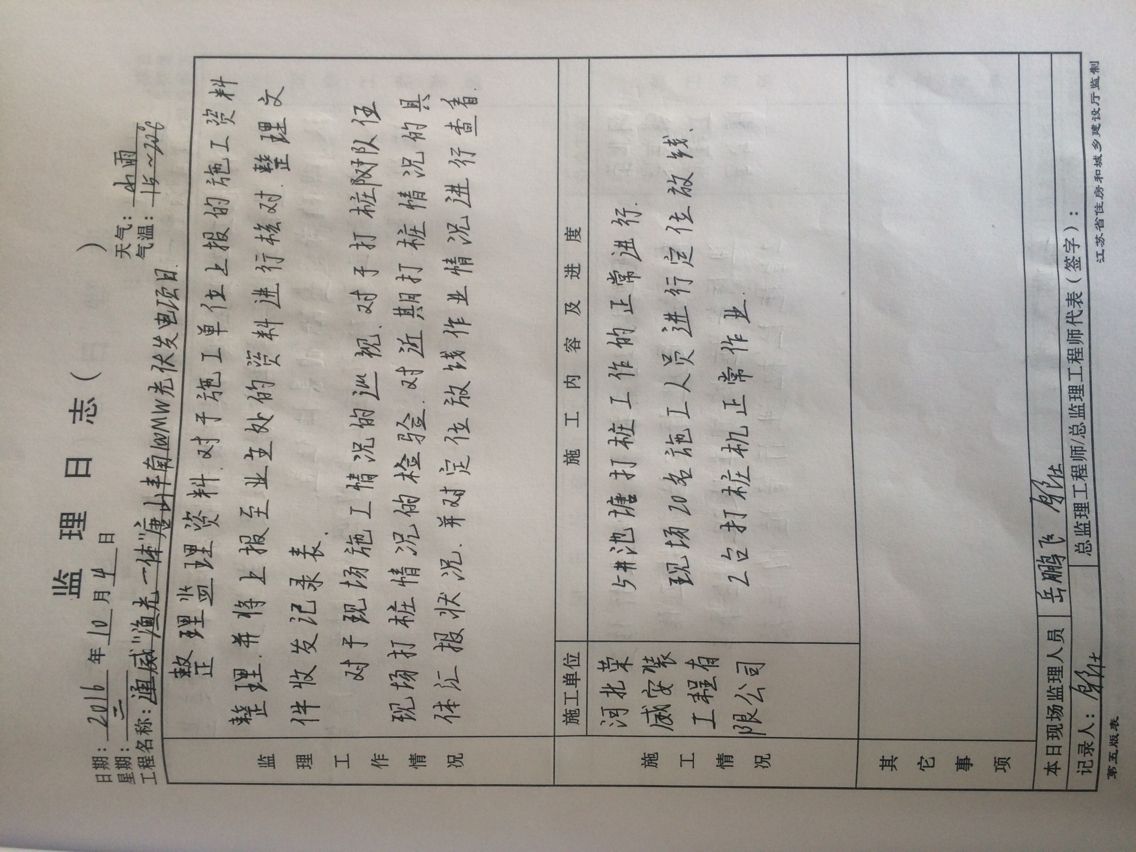 监理日志（ ）
日期：2016年10月4日 天气：小雨
星期：二 气温：15～20℃
工程名称：通威“渔光一体”唐山丰南10MW光伏发电项目.
监理工作情况
整理监理资料.对于施工单位上报的施工资料
整理.并将上报至业主处的资料进行核对.整理文
件收发记录表.
对于现场施工情况的巡视.对于打桩队伍
现场打桩情况的检验.对近期打桩情况的具
体汇报状况.并对定位放线作业情况进行查看.
施工情况
施工单位 施工内容及进度
河北荣
威安装
工程有
限公司
5#池塘打桩工作的正常进行.
现场20名施工人员进行定位放线.
2台打桩机正常作业.
其它事项
本日现场监理人员 岳鹏飞
记录人： 总监理工程师/总监理工程师代表（签字）：
第五版表 江苏省住房和城乡建设厅监制